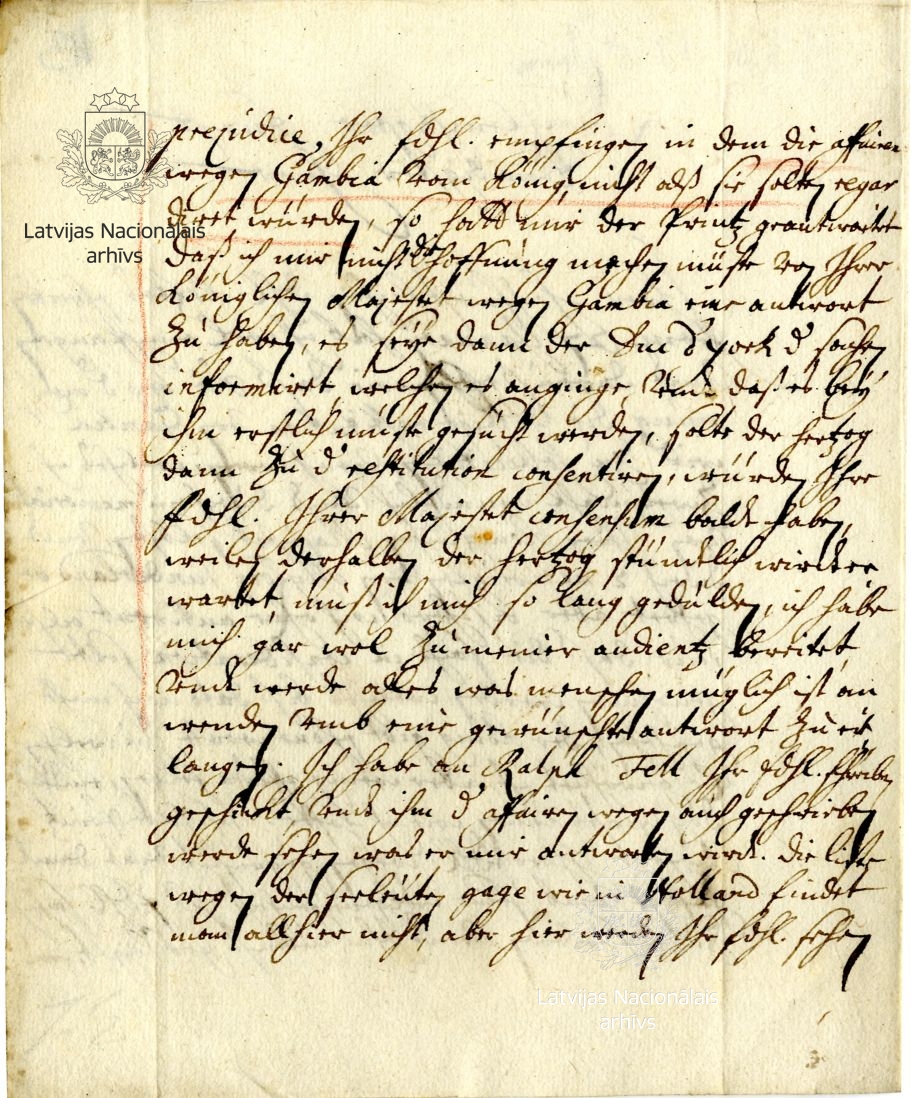 prejudice, Ihr fdhl. empfingen in dem die affairen
wegen Gambia vom König nicht alß sie solten regar
diret würden, so hatt mir der Printz geantwortet
daß ich mir nicht die hoffnung machen müste von Ihrer
Königlichen Majestet wegen Gambia eine antwort
zu haben, es seye dann der Duc d york d sachen
informiret, welchen es anginge, undt daß es bey
ihm erstlich müste gesucht werden, solte der hertzog
dann zu d restitution consentiren, würden Ihre
fdhl. Ihrer Majestet consensum balde haben,
weilen derhalben der hertzog stündtlich wirdt er
wartet, muß ich mich so lang gedulden, ich habe
mich gar wol zu meiner audientz bereitet,
undt werde alles was menschen müglich ist an
wenden umb eine gewünschte antwort zu er
langen. Ich habe an Ralph Fell Ihr fdhl. schreiben
geschickt, undt ihm d affairen wegen auch geschrieben
werde sehen was er mir antworten wirdt. die liste
wegen der seeleüten gage wie in Holland findet
man allhier nicht, aber hier werden Ihr fdhl. sehen
Latvijas Nacionālais
arhīvs
Latvijas Nacionālais
arhīvs